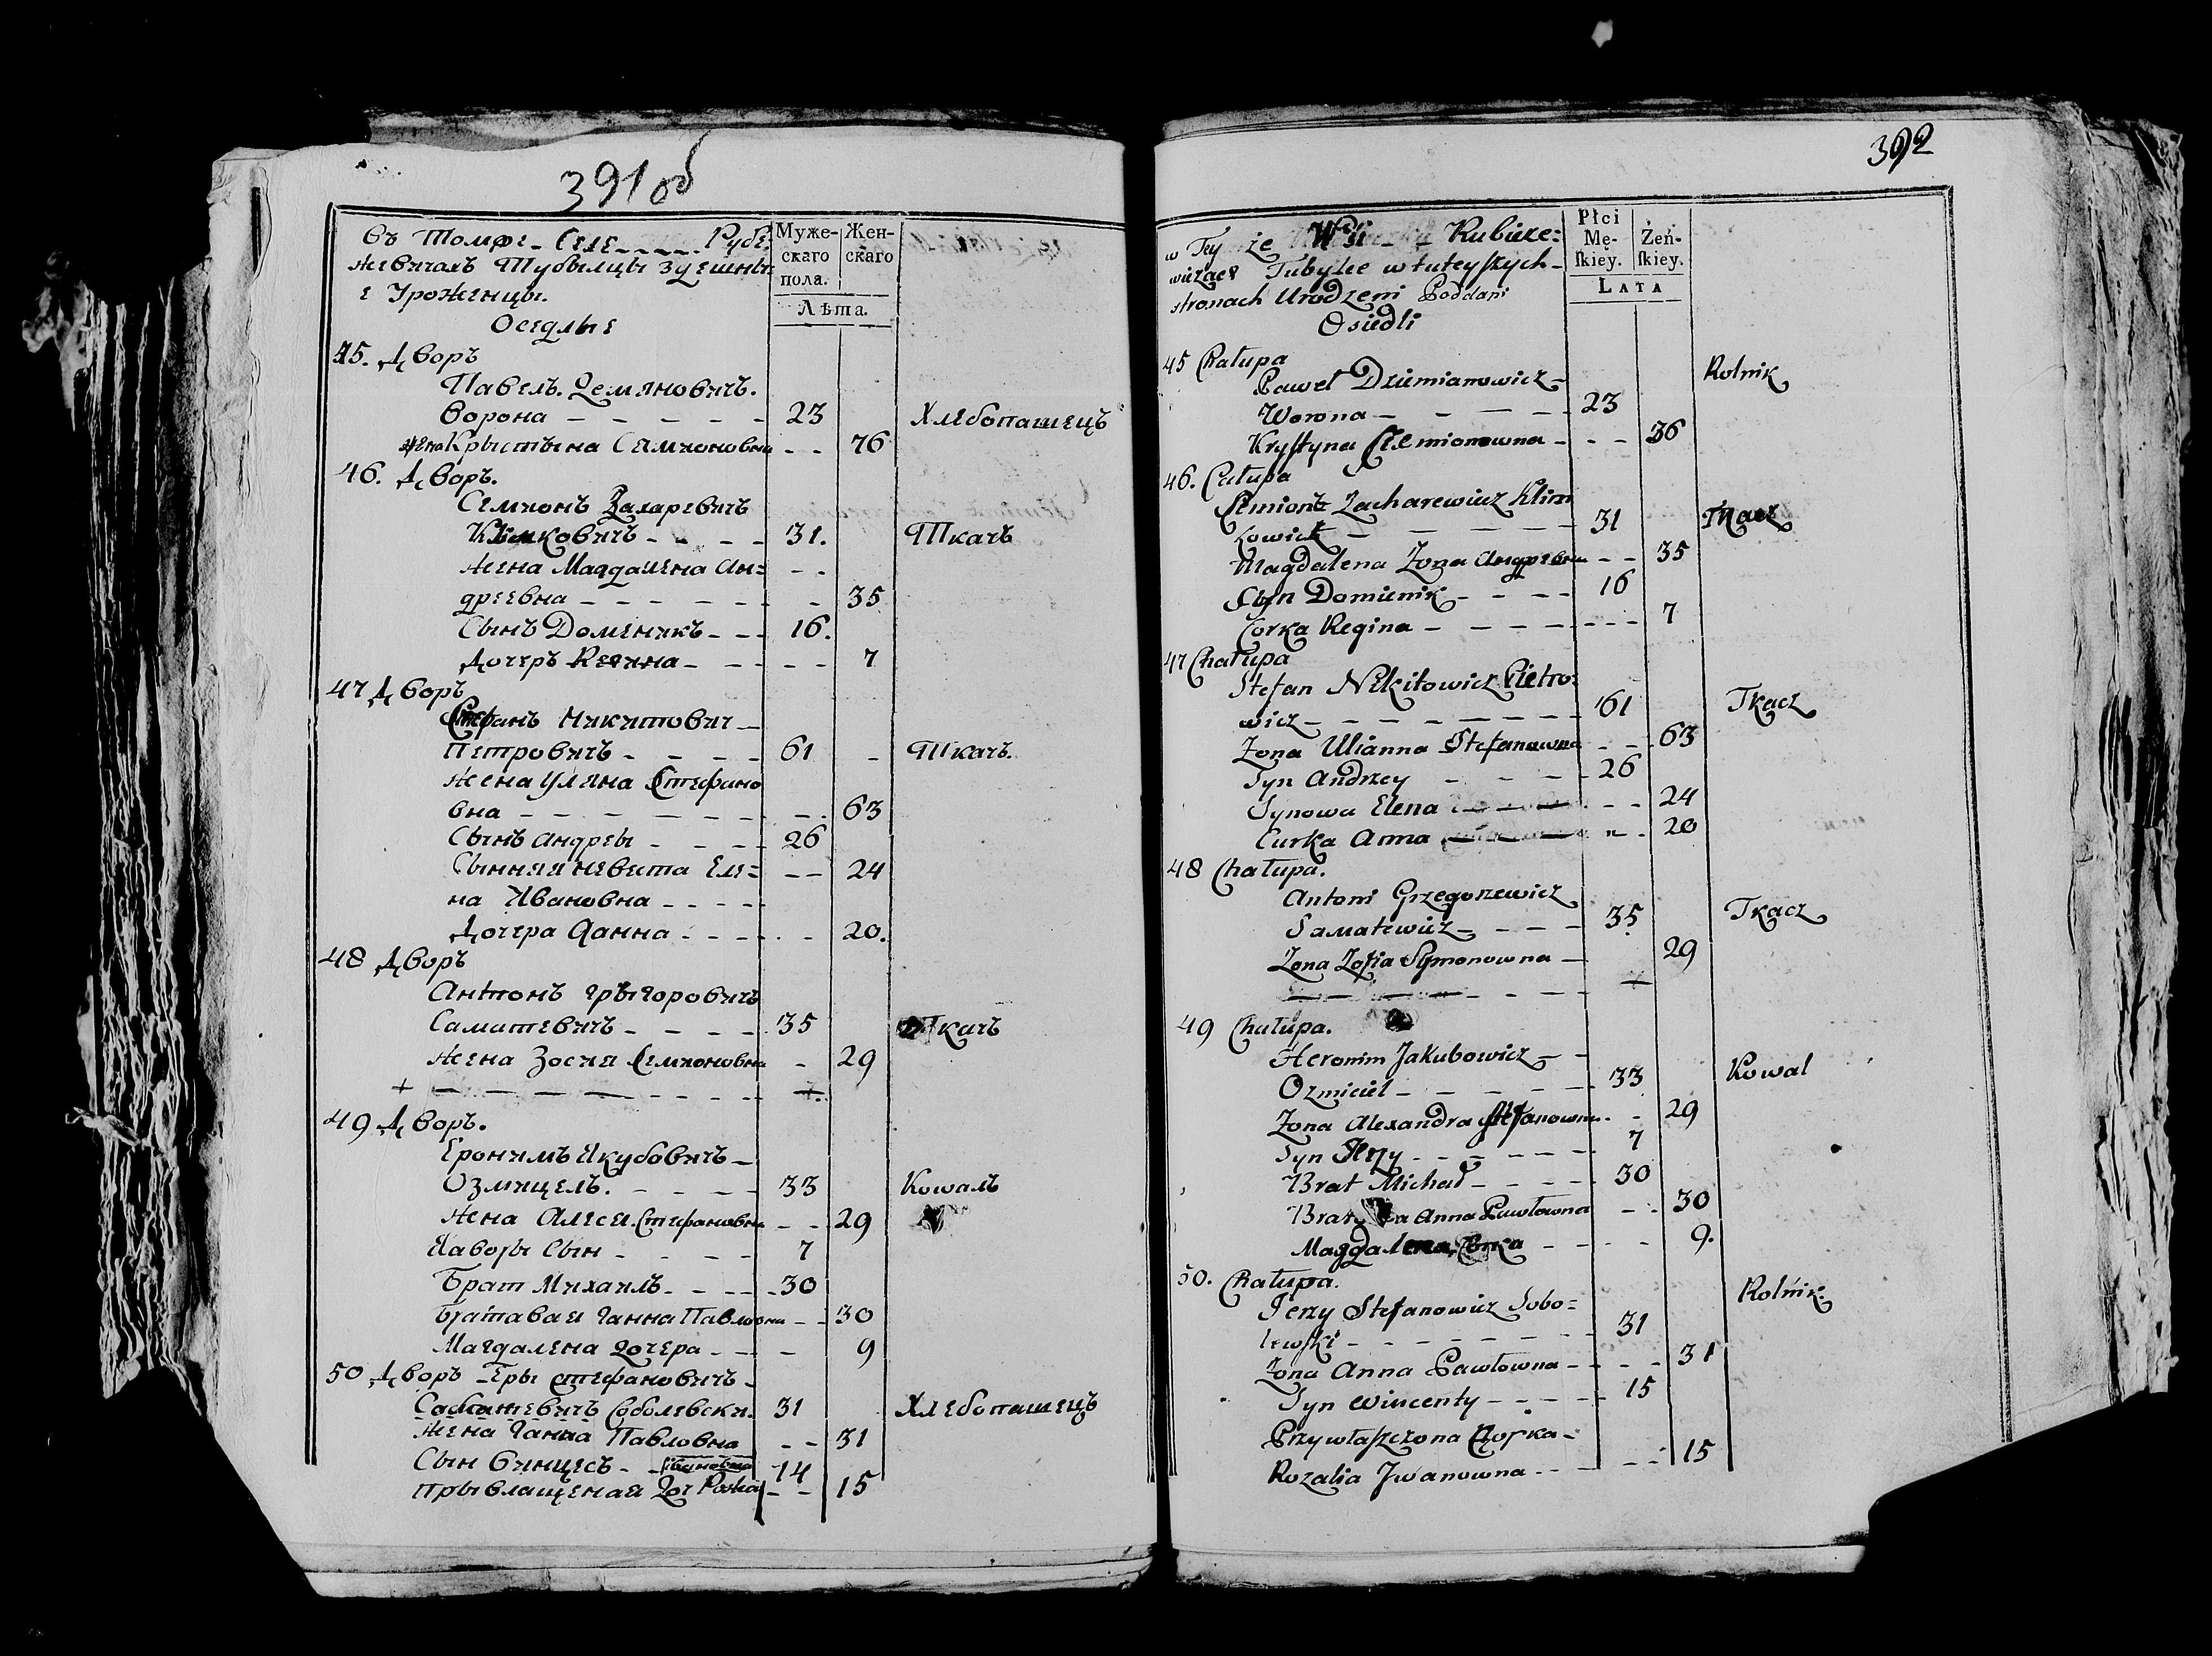 391 об
въ Томже Селе Рубе:
жевичахъ Тубылцы зуешны
е Уроженцы.
Оседлые
Муже-
скаго
пола.
Жен-
скаго
Лѣта.
45. Дворъ
Павелъ Демяновичъ
Ворона — — — 23 Хлебопашецъ
жена Крыстына Семионовна - - 76
46. Дворъ.
Семионъ Захаревичъ
Климковичъ - - - - 31. Ткачъ
Жена Магдалена Ан= - -
дреевна - - - - - - 35
Сынъ Доменикъ - - - 16.
Дочеръ Регина - - - - - 7
47 Дворъ
Стефанъ Никитович —
Петровичъ - - - - 61 - Ткачъ.
Жена Уляна Стефано
вна - - - - - - - 63
Сынъ Андреы - - - - 26
Сынняя невеста Еле= - - 24
на Ивановна - - - - -
Дочера Ганна - - - - - 20.
48 Дворъ
Антонъ Грыгоровичъ
Саматевичъ - - - - 35 Ткачъ
Жена Зосия Семионовна - 29
+ — — — — - - - - +.
49 Дворъ.
Еронимъ Якубовичъ —
Озмицель. - - - - 33 Ковалъ
Жена Алеся Стефановна - - 29
Яворы Сын - - - - 7
Брат Михаилъ - - - - 30
Братавая Ганна Павловна - - 30
Магдалена дочера - - - 9
50 Дворъ Еры Стефановичъ
Соболевски. 31 Хлебопашецъ
Жена Ганна Павловна - - 31
Сын Винцесъ - - Ивановна 14
Прывлащеная доч Розал - - 15
392
w Tey że Wsi — — Rubieże:
wiczach Tubylce w tuteyszych-
stronach Urodzeni Poddani
Osiedli
Płci
Mę-
skiey.
Żeń-
skiey.
LATA
45 Chałupa Rolnik
Paweł Dziemianowicz —
Worona — - — — 23
Krystyna Siemionowna - - - 36
46. Chałupa
Siemion Zacharewicz Klim
kowicz — — — — — 31 Tkacz
Magdalena Zona Андревна - - 35
Syn Domienik - - - - 16
Corka Regina — - - - - - - 7
47 Chałupa
Stefan Nikitowicz Pietro: Tkacz
wicz - - - - - - - - 61
Zona Ulianna Stefanowna - - 63
Syn Andrzey - - - - 26
Synowa Elena — — — - - 24
Curka Anna — — — - - 20
48 Chałupa.
Antoni Grzegorzewicz
Samatewicz - - - - 35 Tkacz
Zona Zofia Symonowna — 29
— — — - - - - +
49 Chałupa.
Heronim Jakubowicz - -
Ozmiciel - - - - - - 33 Kowal
Zona Alexandra Stefanowna - - 29
Syn Jerzy - - - - - - 7
Brat Michał - - - - - 30
Anna Pawłowna - - 30
Magdalena Corka - - - - 9.
50. Chałupa. Rolnik.
Jerzy Stefanowicz Sobo=
lewski - - - - - - - 31
Zona Anna Pawłowna - - - - 31
Syn Wincenty - - - - - 15
Przywłaszczona Цорка -
Rozalia Jwanowna - - - - - 15